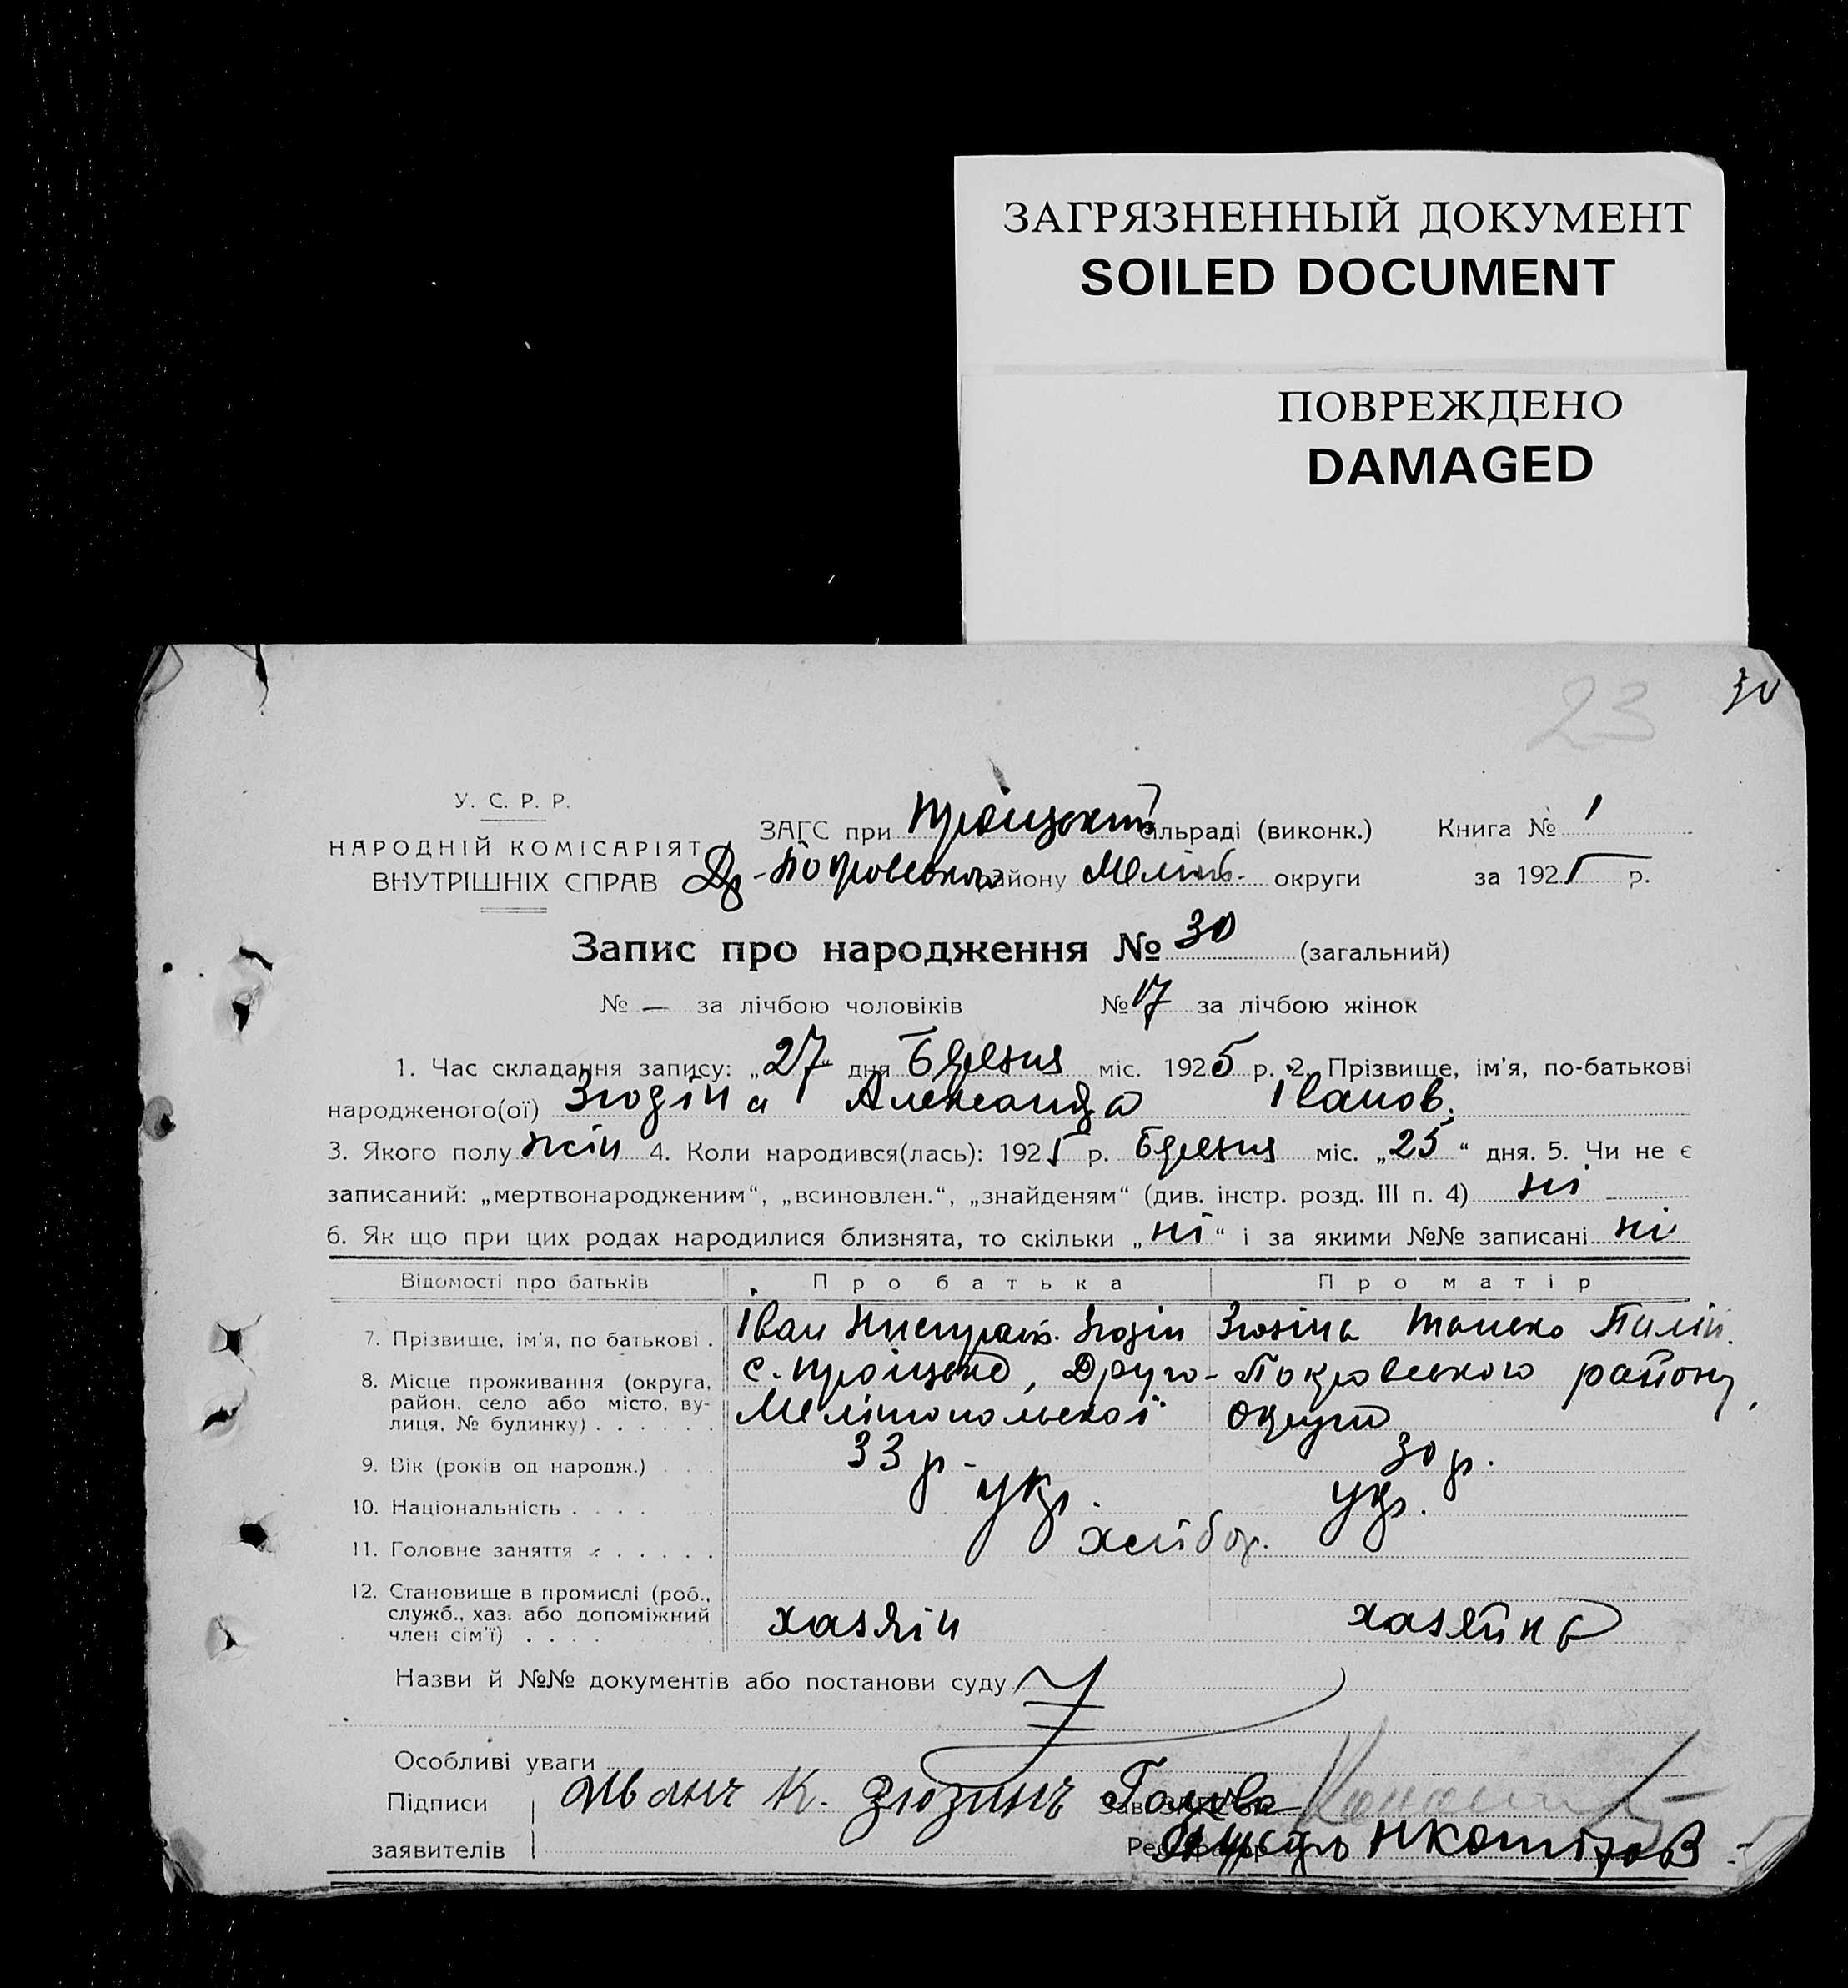 ЗАГРЯЗНЕННЫЙ ДОКУМЕНТ
SOILED DOCUMENT
ПОВРЕЖДЕНО
DAMAGED
23 30
У. С. Р. Р.
НАРОДНІЙ КОМІСАРІЯТ
ВНУТРІШНІХ СПРАВ
ЗАГС при Троїцькій сільраді (виконк.) Книга № 1
Др-Покровського району Меліт. округи за 1925 р.
Запис про народження № 30 (загальний)
№ — за лічбою чоловіків № 17 за лічбою жінок
1. Час складання запису: „27“ дня березня міс. 1925 р. 2. Прізвище, ім'я, по-батькові
народженого(ої) Зюзіна Александра Іванов.
3. Якого полу жін 4. Коли народився(лась): 1925 р. березня міс. „25“ дня. 5. Чи не є
записаний: „мертвонародженим“, „всиновлен.“, „знайденям“ (див. інстр. розд. III п. 4) ні
6. Як що при цих родах народилися близнята, то скільки „ні“ і за якими №№ записані ні
Відомості про батьків Про батька Про матір
7. Прізвище, ім'я, по батькові . Іван Зюзін Зюзіна
8. Місце проживання (округа, район, село або місто, вулиця, № будинку) . . . . . . с. Троіцьке, Друго-Покровського району,
Мелітопольської округи
9. Вік (років од народж.) . . . 33 р. 30 р.
10. Національність . . . . . . . укр. укр.
11. Головне заняття . . . . . . хлібор.
12. Становище в промислі (роб., служб., хаз. або допоміжний член сім'ї) . . . . хазяін хазяйка
Назви й №№ документів або постанови суду
Особливі уваги
Підписи заявителів Иванъ К. Зюзинъ Голова